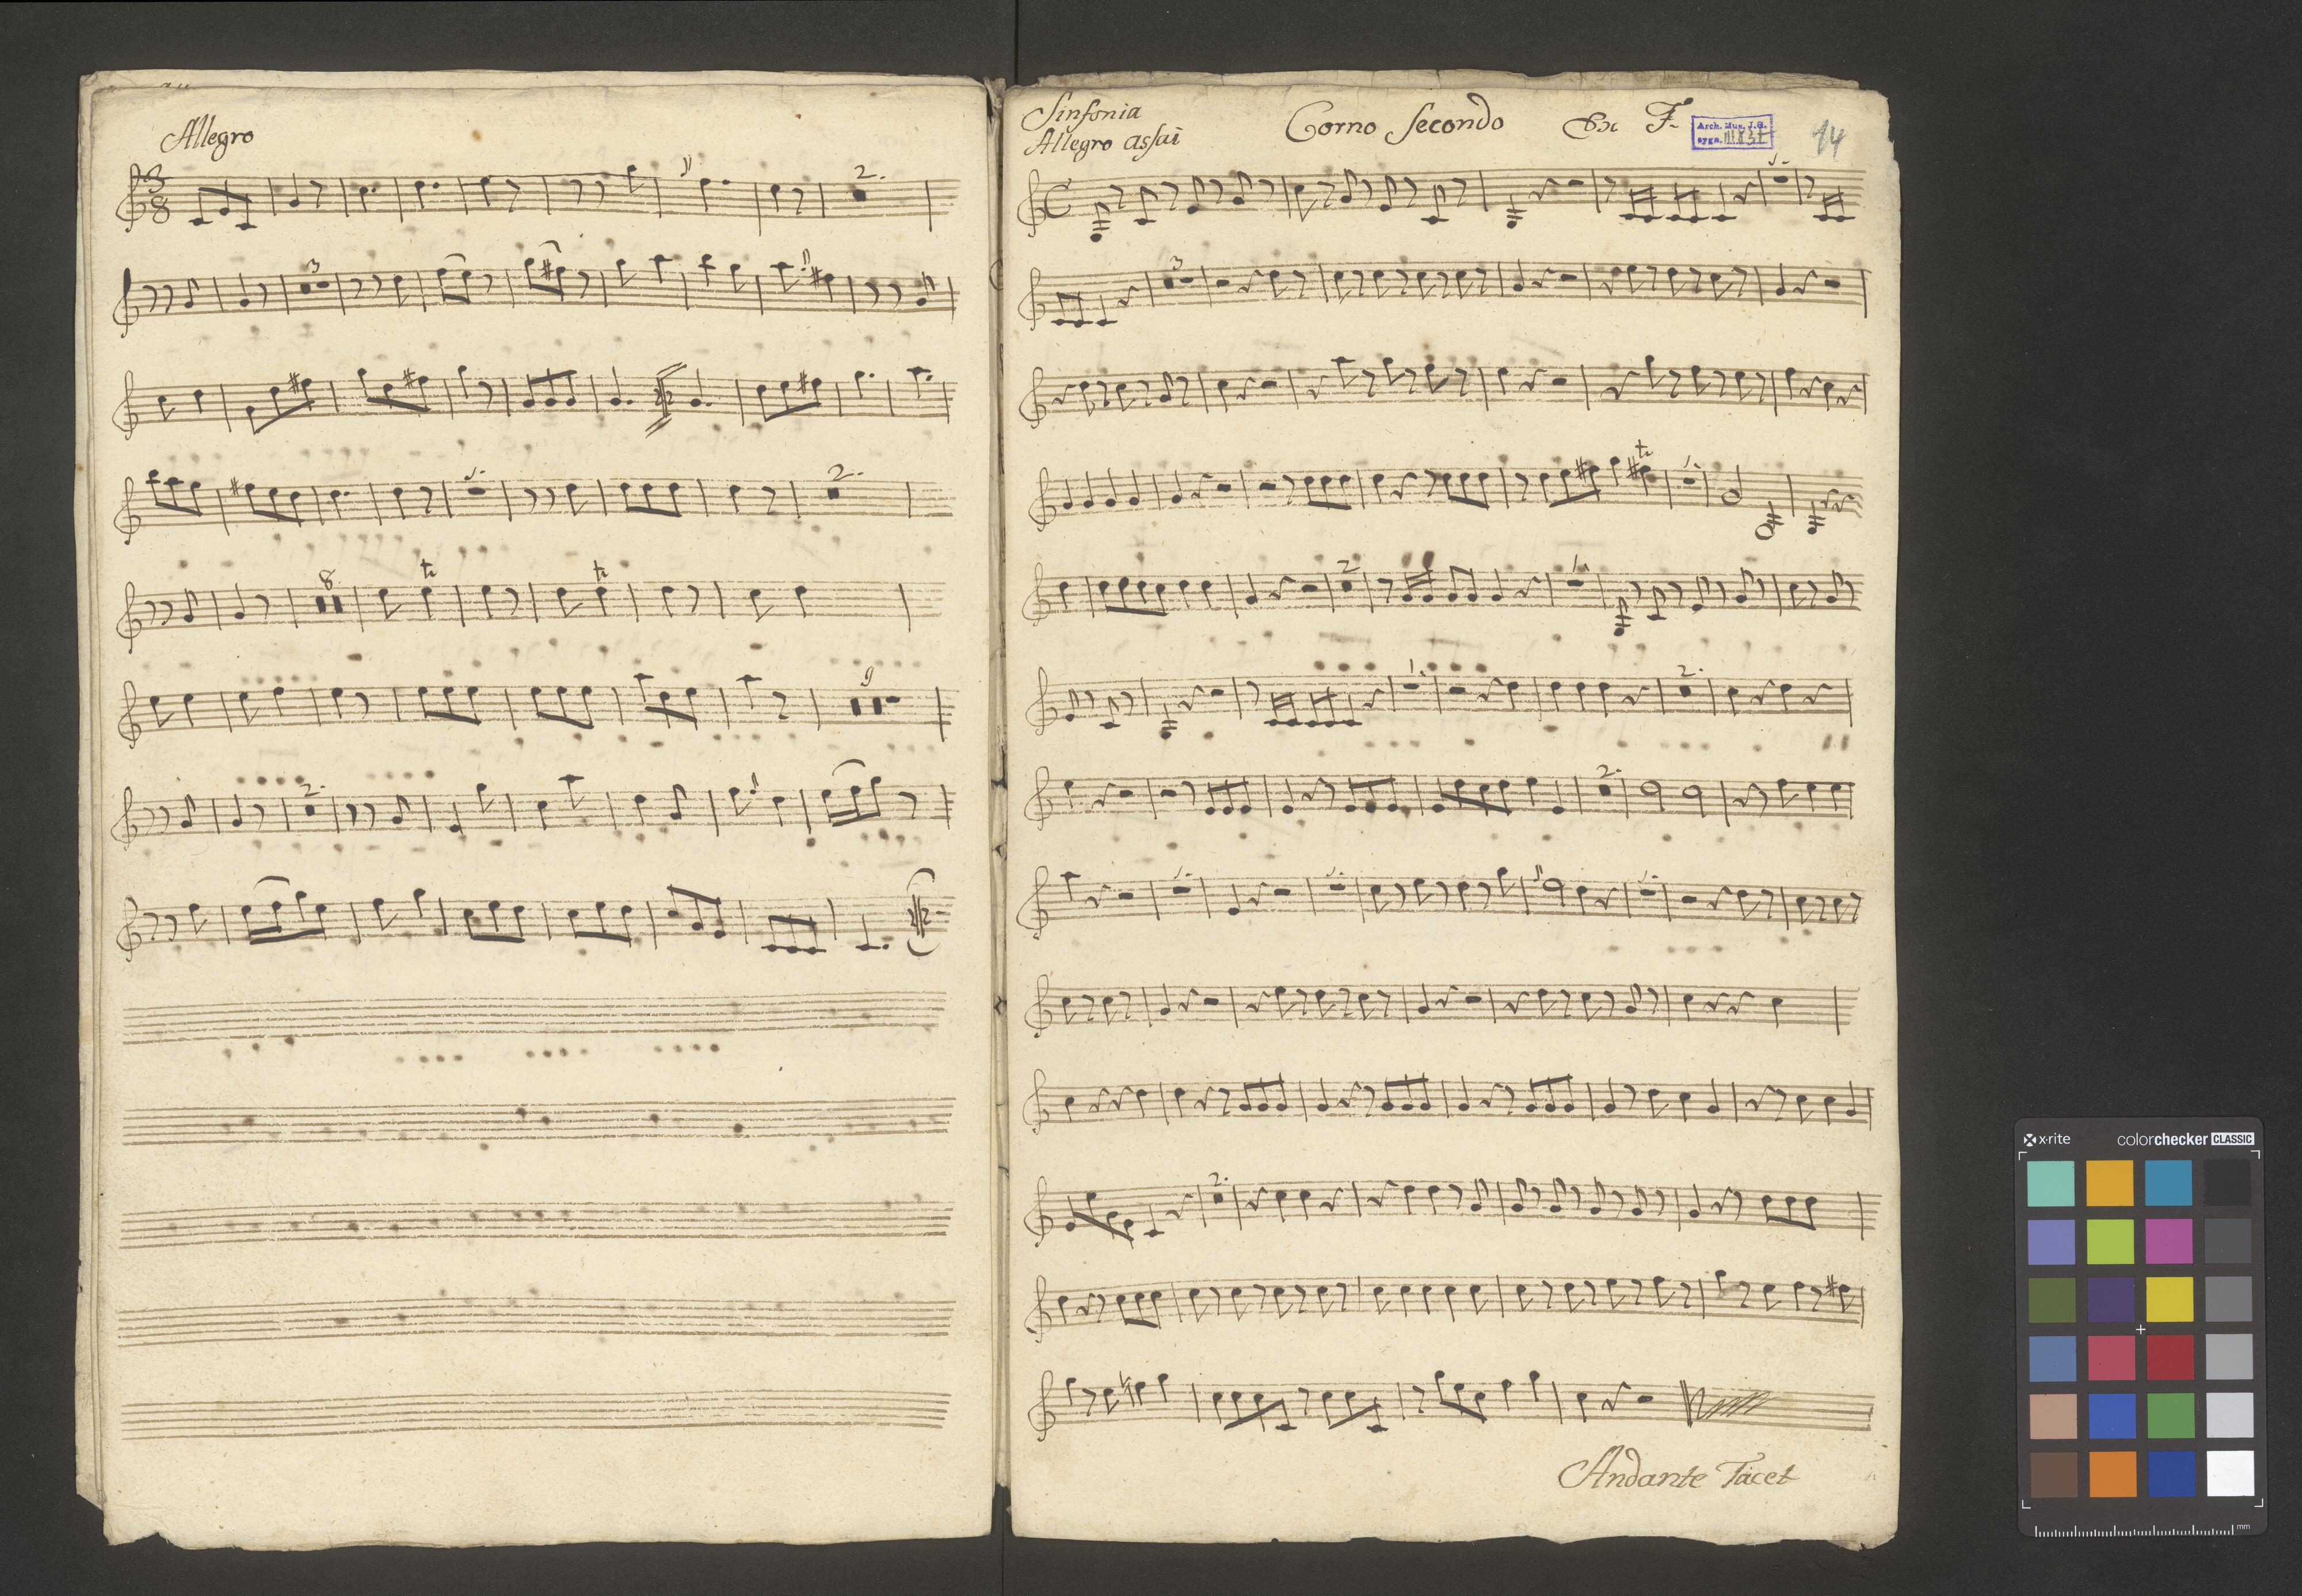 Allegro
3
8
2.
3
2.
8
9
2.
Sinfonia
Allegro assai
Corno Secondo
Ex F.
Arch. Mus. J.G.
sygn.
14
3
2
2.
2.
2.
Andante Tacet
x·rite
colorchecker CLASSIC
mm